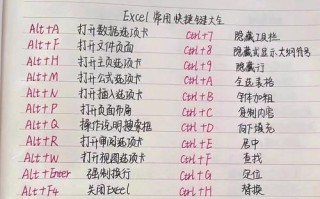 Excel常用快捷键大全
Alt+A 打开数据选项卡 Ctrl+7 隐藏工具栏
Alt+F 打开文件页面 Ctrl+8 隐藏或显示大纲符号
Alt+H 打开主页选项卡 Ctrl+9 隐藏行
Alt+M 打开公式选项卡 Ctrl+A 全选表格
Alt+N 打开插入选项卡 Ctrl+B 字体加粗
Alt+P 打开页面布局 Ctrl+C 复制内容
Alt+Q 操作说明搜索框 Ctrl+D 向下填充
Alt+R 打开审阅选项卡 Ctrl+E 居中
Alt+W 打开视图选项卡 Ctrl+F 查找
Alt+Enter 强制换行 Ctrl+G 定位
Alt+F4 关闭Excel Ctrl+H 替换